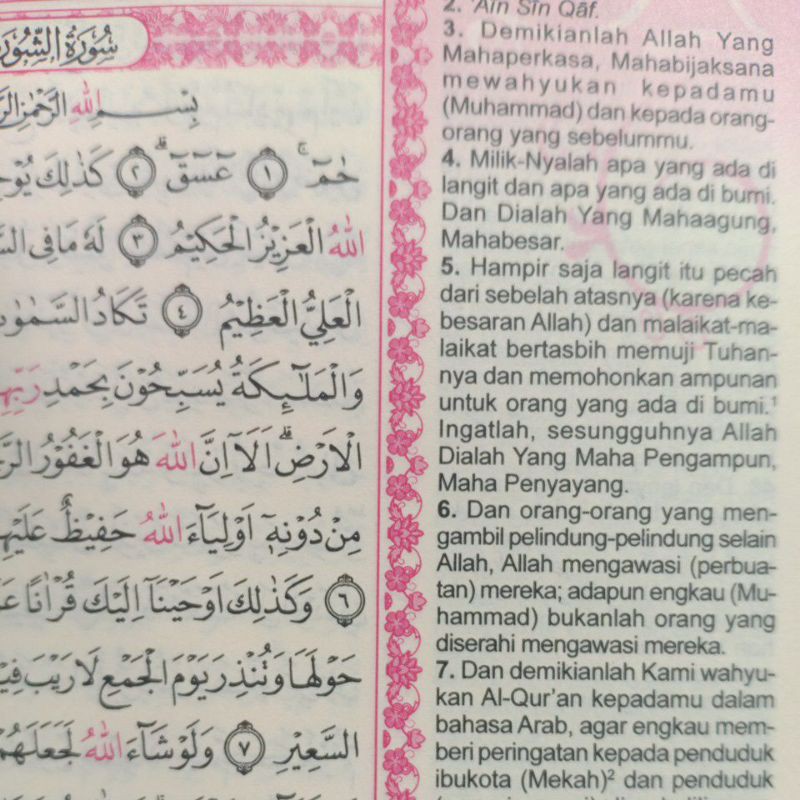 سُورَةُ الشُّورَ
بِسْمِ اللّٰهِ الرَّحْمٰنِ
حٰمۤ ۚ ١ عۤسۤقۤ ۗ ٢ كَذٰلِكَ
اللّٰهُ الْعَزِيْزُ الْحَكِيْمُ ٣ لَهٗ مَا فِى
الْعَلِيُّ الْعَظِيْمُ ٤ تَكَادُ السَّمٰوٰ
وَالْمَلٰۤىِٕكَةُ يُسَبِّحُوْنَ بِحَمْدِ رَبِّهِ
الْاَرْضِۗ اَلَآ اِنَّ اللّٰهَ هُوَ الْغَفُوْرُ
مِنْ دُوْنِهٖٓ اَوْلِيَاۤءَ اللّٰهُ حَفِيْظٌ عَلَيْهِ
٦ وَكَذٰلِكَ اَوْحَيْنَآ اِلَيْكَ قُرْاٰنًا
حَوْلَهَا وَتُنْذِرَ يَوْمَ الْجَمْعِ لَا رَيْبَ
السَّعِيْرِ ٧ وَلَوْ شَاۤءَ اللّٰهُ لَجَعَلَهُمْ
2. 'Aīn Sīn Qāf.
3. Demikianlah Allah Yang
Mahaperkasa, Mahabijaksana
mewahyukan kepadamu
(Muhammad) dan kepada orang-
orang yang sebelummu.
4. Milik-Nyalah apa yang ada di
langit dan apa yang ada di bumi.
Dan Dialah Yang Mahaagung,
Mahabesar.
5. Hampir saja langit itu pecah
dari sebelah atasnya (karena ke-
besaran Allah) dan malaikat-ma-
laikat bertasbih memuji Tuhan-
nya dan memohonkan ampunan
untuk orang yang ada di bumi.¹
Ingatlah, sesungguhnya Allah
Dialah Yang Maha Pengampun,
Maha Penyayang.
6. Dan orang-orang yang men-
gambil pelindung-pelindung selain
Allah, Allah mengawasi (perbua-
tan) mereka; adapun engkau (Mu-
hammad) bukanlah orang yang
diserahi mengawasi mereka.
7. Dan demikianlah Kami wahyu-
kan Al-Qur'an kepadamu dalam
bahasa Arab, agar engkau mem-
beri peringatan kepada penduduk
ibukota (Mekah)² dan penduduk